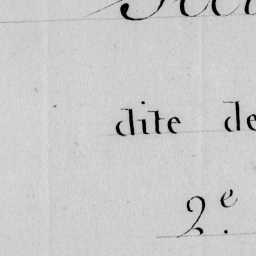 dite de
2.e